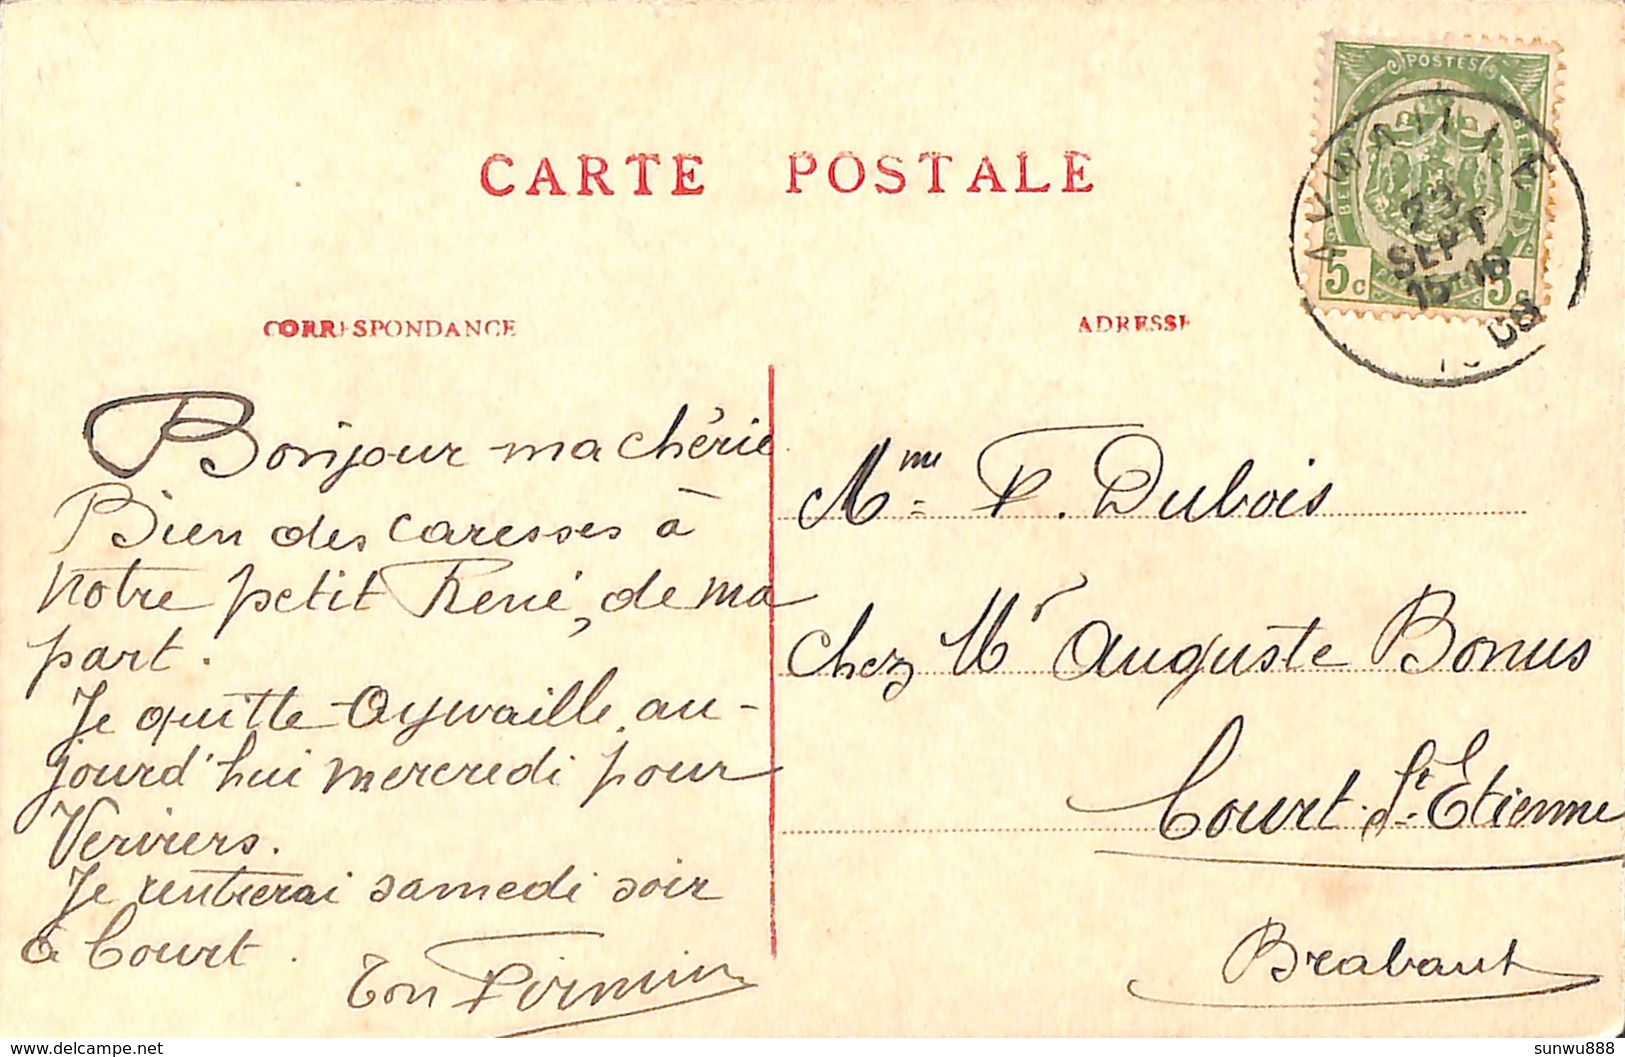 CARTE POSTALE
CORRESPONDANCE
ADRESSE
POSTES
5c 5c
AYWAILLE
23
SEPT
15-16
08
Bonjour ma chérie
Bien des caresses à
notre petit René, de ma
part.
Je quitte Aywaille au-
jourd'hui mercredi pour
Verviers.
Je rentrerai samedi soir
à Court.
Ton Firmin
Mme F. Dubois
chez Mr Auguste Bonus
Court-St-Etienne
Brabant
delcampe.net
sunwu888